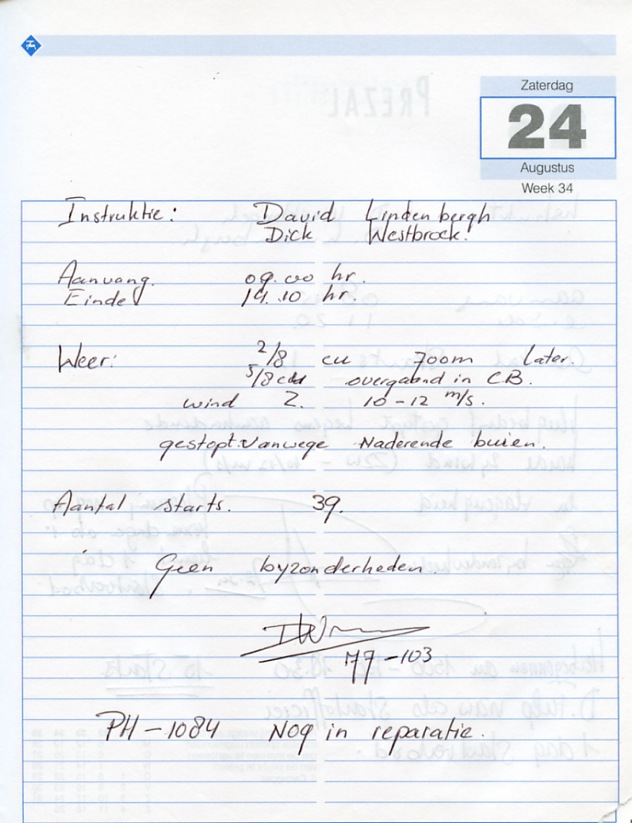 Zaterdag
24
Augustus
Week 34
Instruktie: David Lindenbergh
Dick Westbroek.
Aanvang. 09.00 hr.
Einde 19.10 hr.
Weer: 2/8 cu 700m later.
5/8 overgaand in CB.
wind Z. 10-12 m/s.
gestopt vanwege Naderende buien.
Aantal starts. 39.
Geen byzonderheden.
77-103
PH-1084 Nog in reparatie.